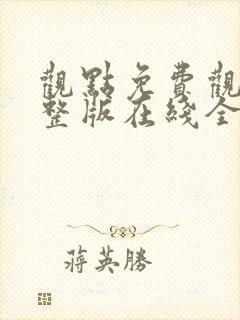 觀點免費觀
整版在綫全
蔣英勝